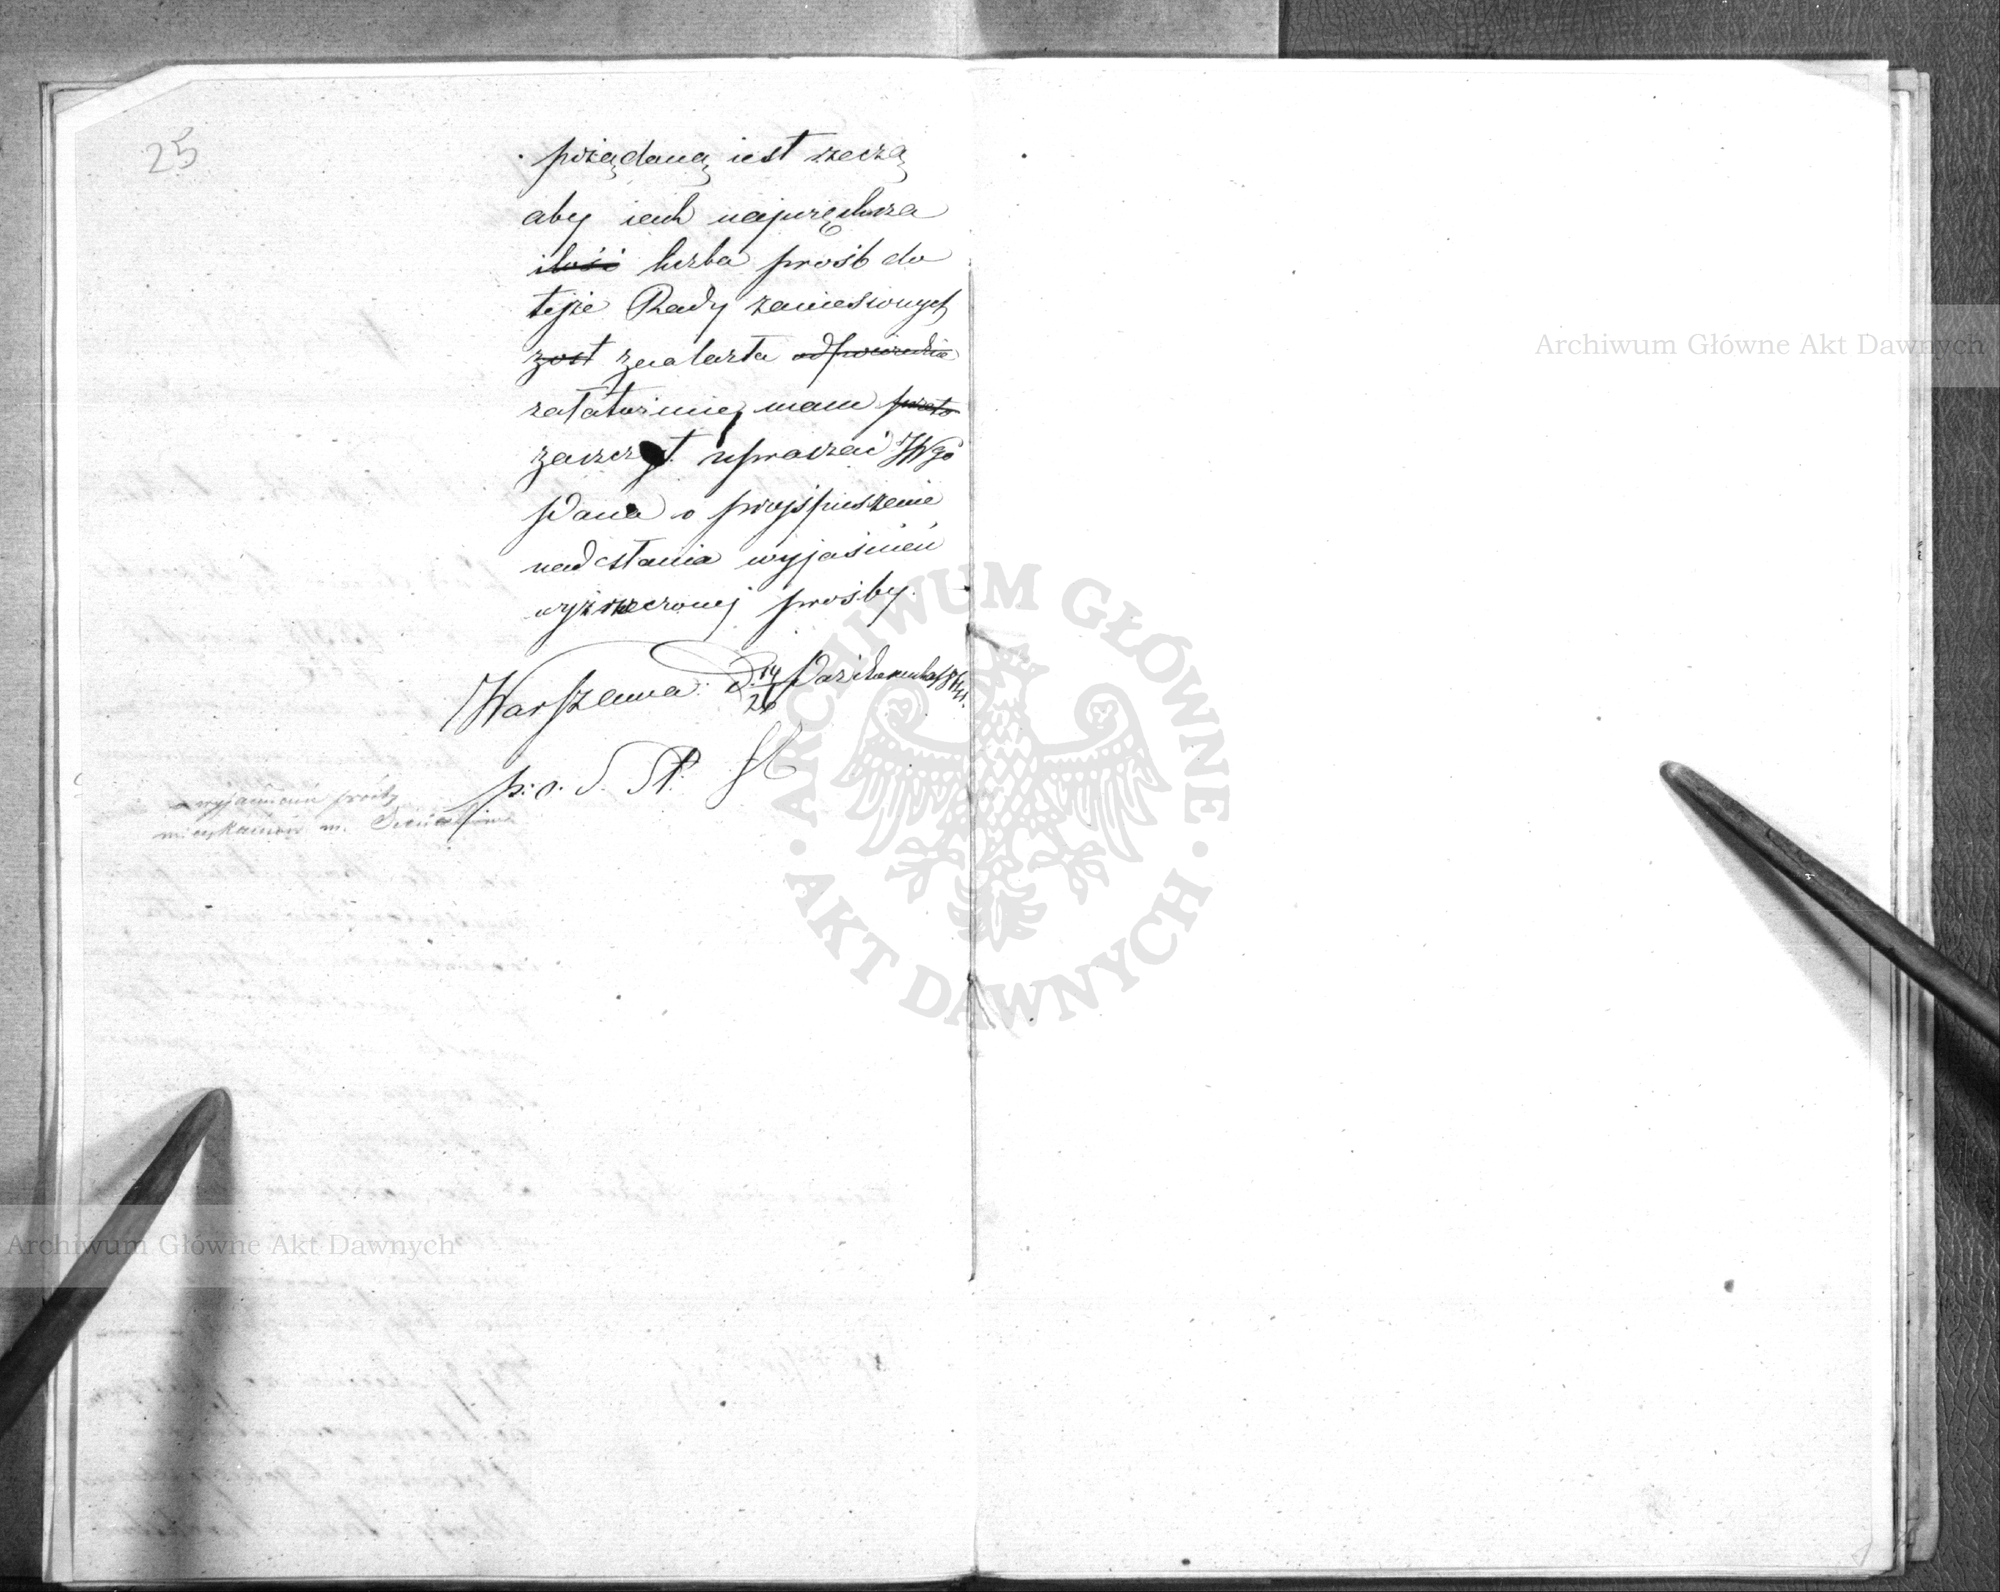 25
pożądaną iest rzeczą
aby iak najprędsza
ilość liczba prośb do
tejże Rady zaniesionych
zost znalazła odpowiednie
załatwienie, mam przeto
zaszczyt upraszać JWgo
Pana o przyśpieszenie
nadesłania wyjaśnień
wyżrzeczonej prośby.
Warszawa d. 14/26 Października
p. o. S. St.
o wyjaśnienie prośby
mieszkańców m.
Archiwum Główne Akt Dawnych
Archiwum Główne Akt Dawnych
ARCHIWUM GŁÓWNE
AKT DAWNYCH